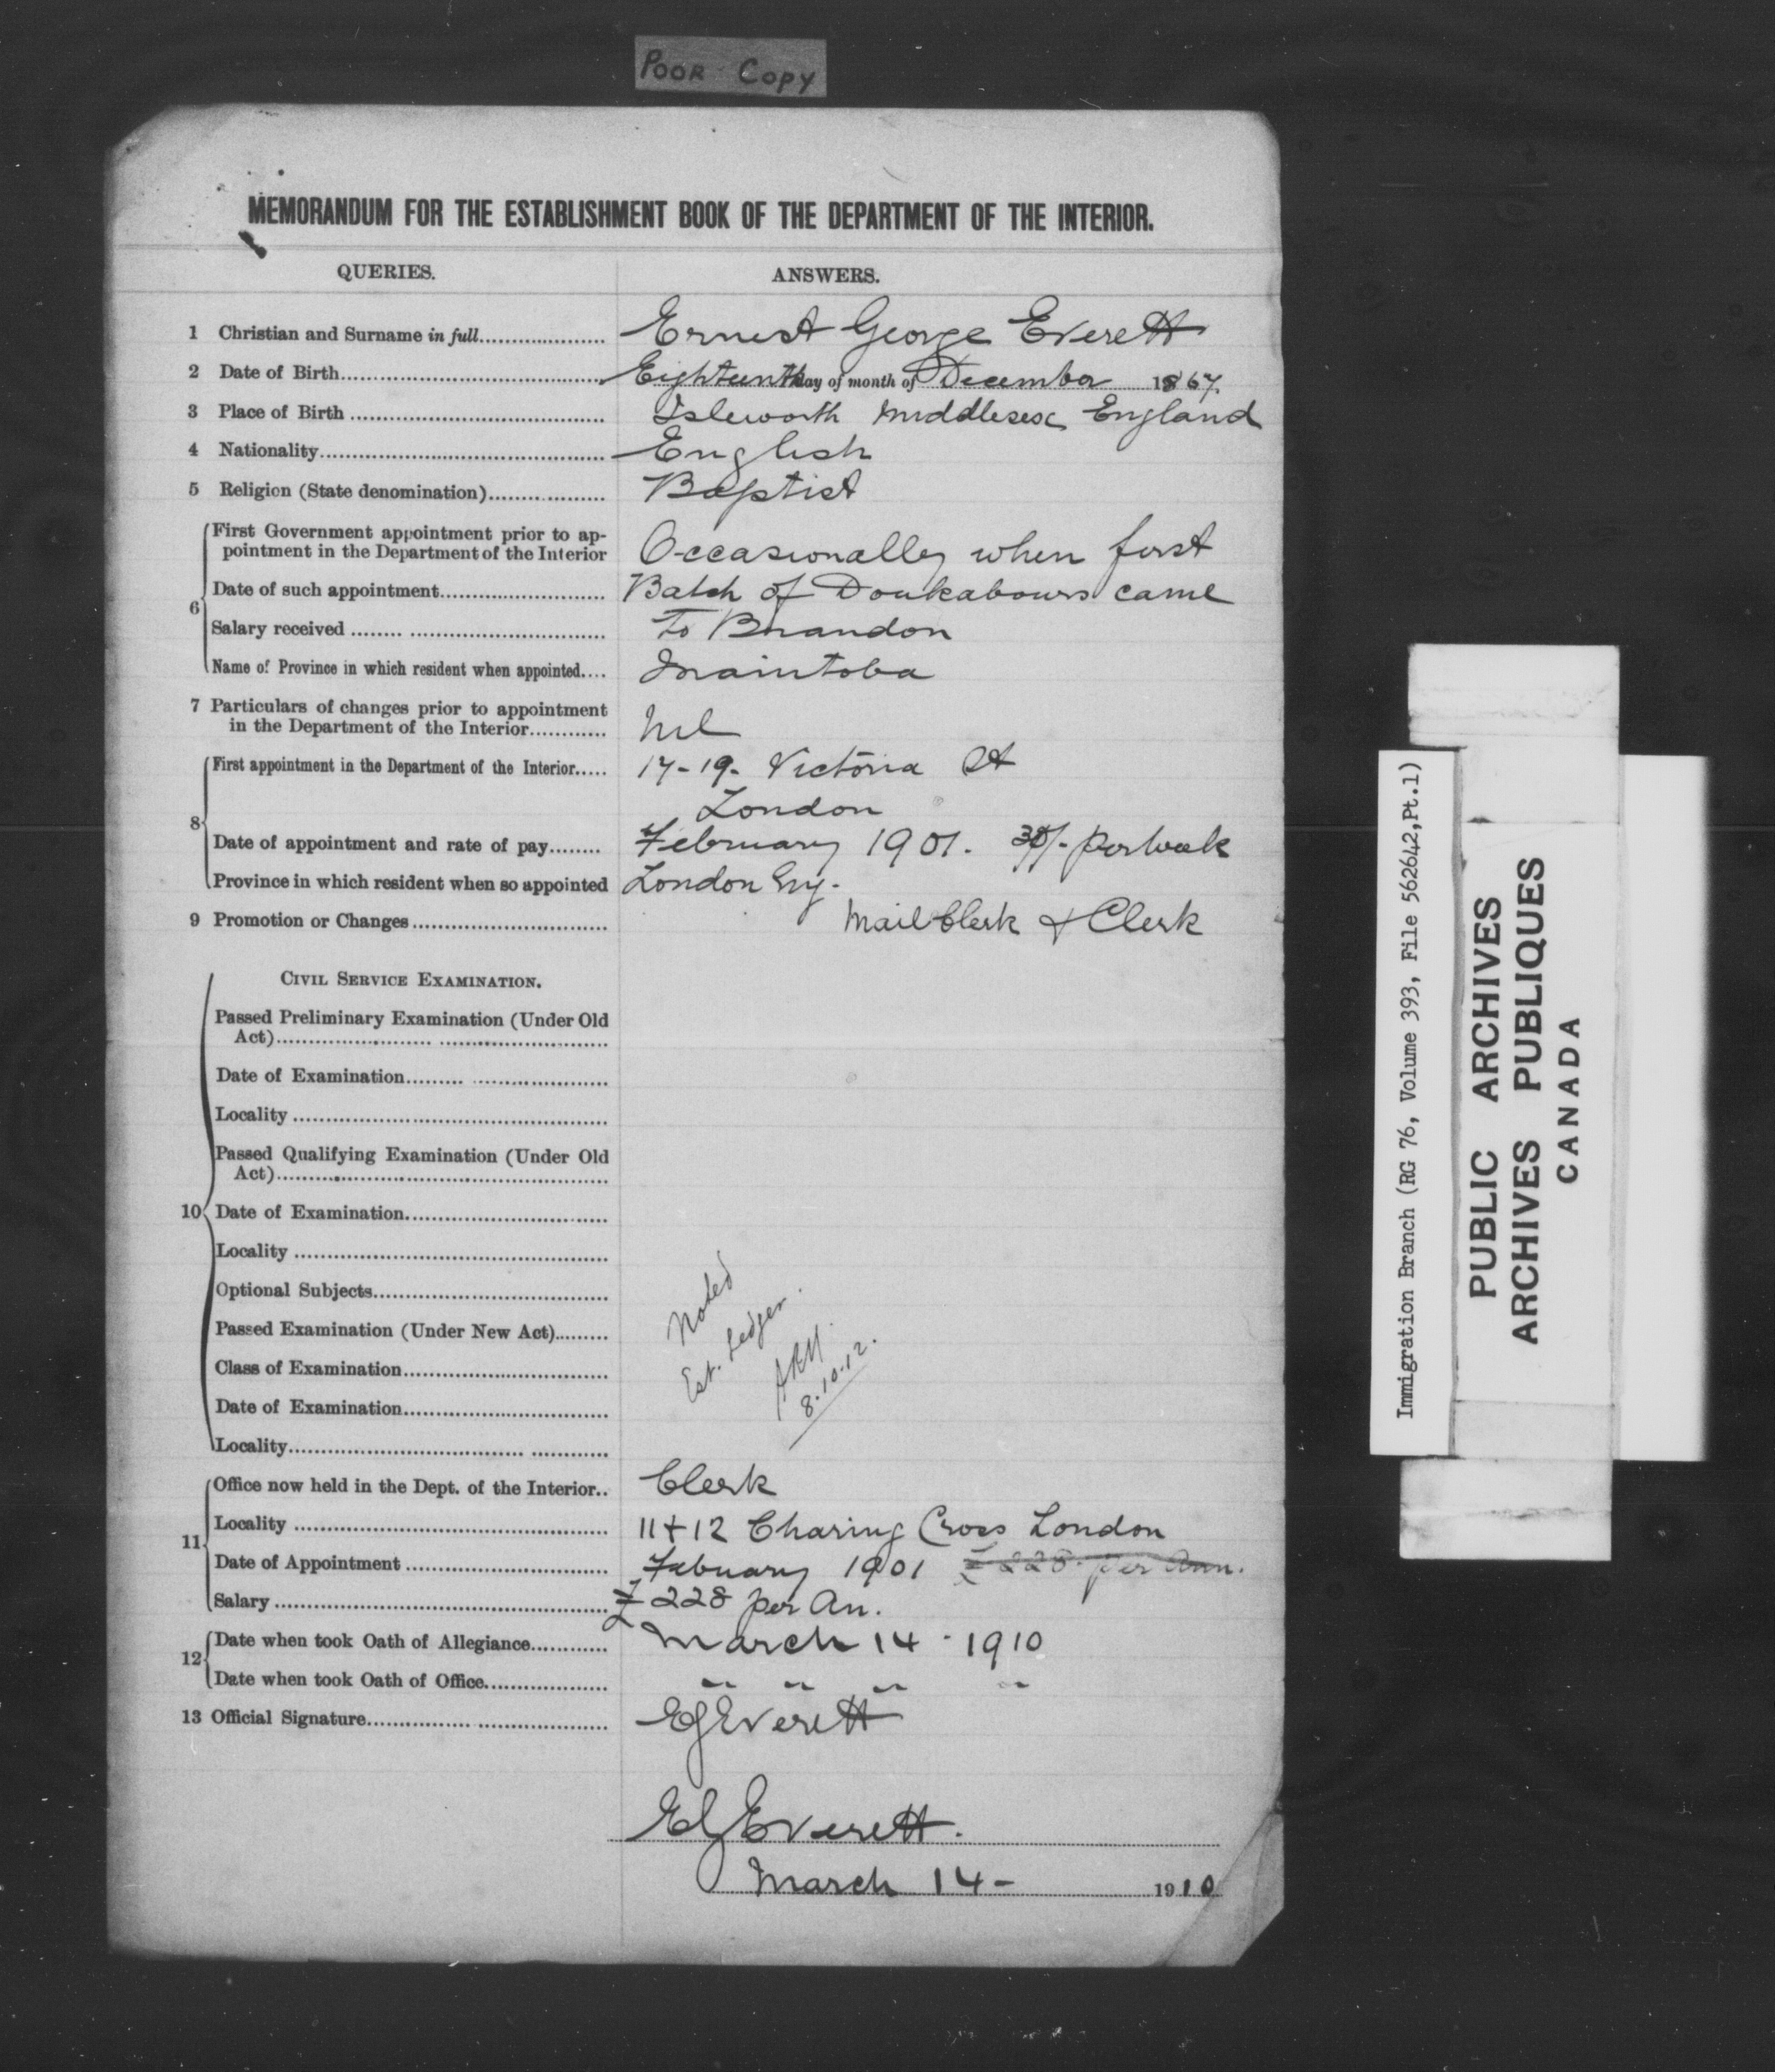 POOR COPY
MEMORANDUM FOR THE ESTABLISHMENT BOOK OF THE DEPARTMENT OF THE INTERIOR.
QUERIES. ANSWERS.
1 Christian and Surname in full.................... Ernest George Everett
2 Date of Birth........................................ Eighteenth day of month of December 1867.
3 Place of Birth ....................................... Isleworth Middlesex England
4 Nationality............................................ English
5 Religion (State denomination).................. Baptist
First Government appointment prior to ap-
pointment in the Department of the Interior Occasionally when first
Date of such appointment......................... Batch of Doukabours came
6
Salary received ........ .............................. to Brandon
Name of Province in which resident when appointed.... Manitoba
7 Particulars of changes prior to appointment
in the Department of the Interior............ Nil
First appointment in the Department of the Interior..... 17-19- Victoria St
London
8
Date of appointment and rate of pay........ February 1901. 30/- per week
Province in which resident when so appointed London Eng.
9 Promotion or Changes.............................. Mail Clerk & Clerk
CIVIL SERVICE EXAMINATION.
Passed Preliminary Examination (Under Old
Act)........................ ..........................
Date of Examination......... .....................
Locality ................................................
Passed Qualifying Examination (Under Old
Act)...................................................
10 Date of Examination...............................
Locality ................................................
Optional Subjects....................................
Passed Examination (Under New Act).........
Class of Examination...............................
Date of Examination...............................
Locality.................................... ............
Noted
Est. Ledger.
8.10.12.
Office now held in the Dept. of the Interior.. Clerk
Locality ................................................ 11 + 12 Charing Cross London
11
Date of Appointment ............................... Febuary 1901 £228 per Ann.
Salary................................................... £228 per An.
Date when took Oath of Allegiance............ March 14 - 1910
12
Date when took Oath of Office................... " " " "
13 Official Signature................ .................... EG Everett
EG Everett.
March 14 - 1910
Immigration Branch (RG 76, Volume 393, File 562642,Pt.1)
PUBLIC ARCHIVES
ARCHIVES PUBLIQUES
CANADA